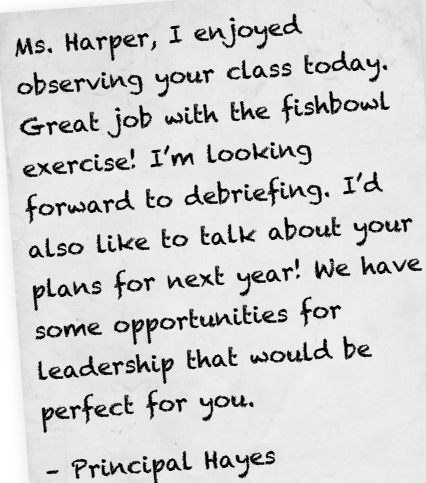 Ms. Harper, I enjoyed
observing your class today.
Great job with the fishbowl
exercise! I'm looking
forward to debriefing. I'd
also like to talk about your
plans for next year! We have
some opportunities for
leadership that would be
perfect for you.
- Principal Hayes